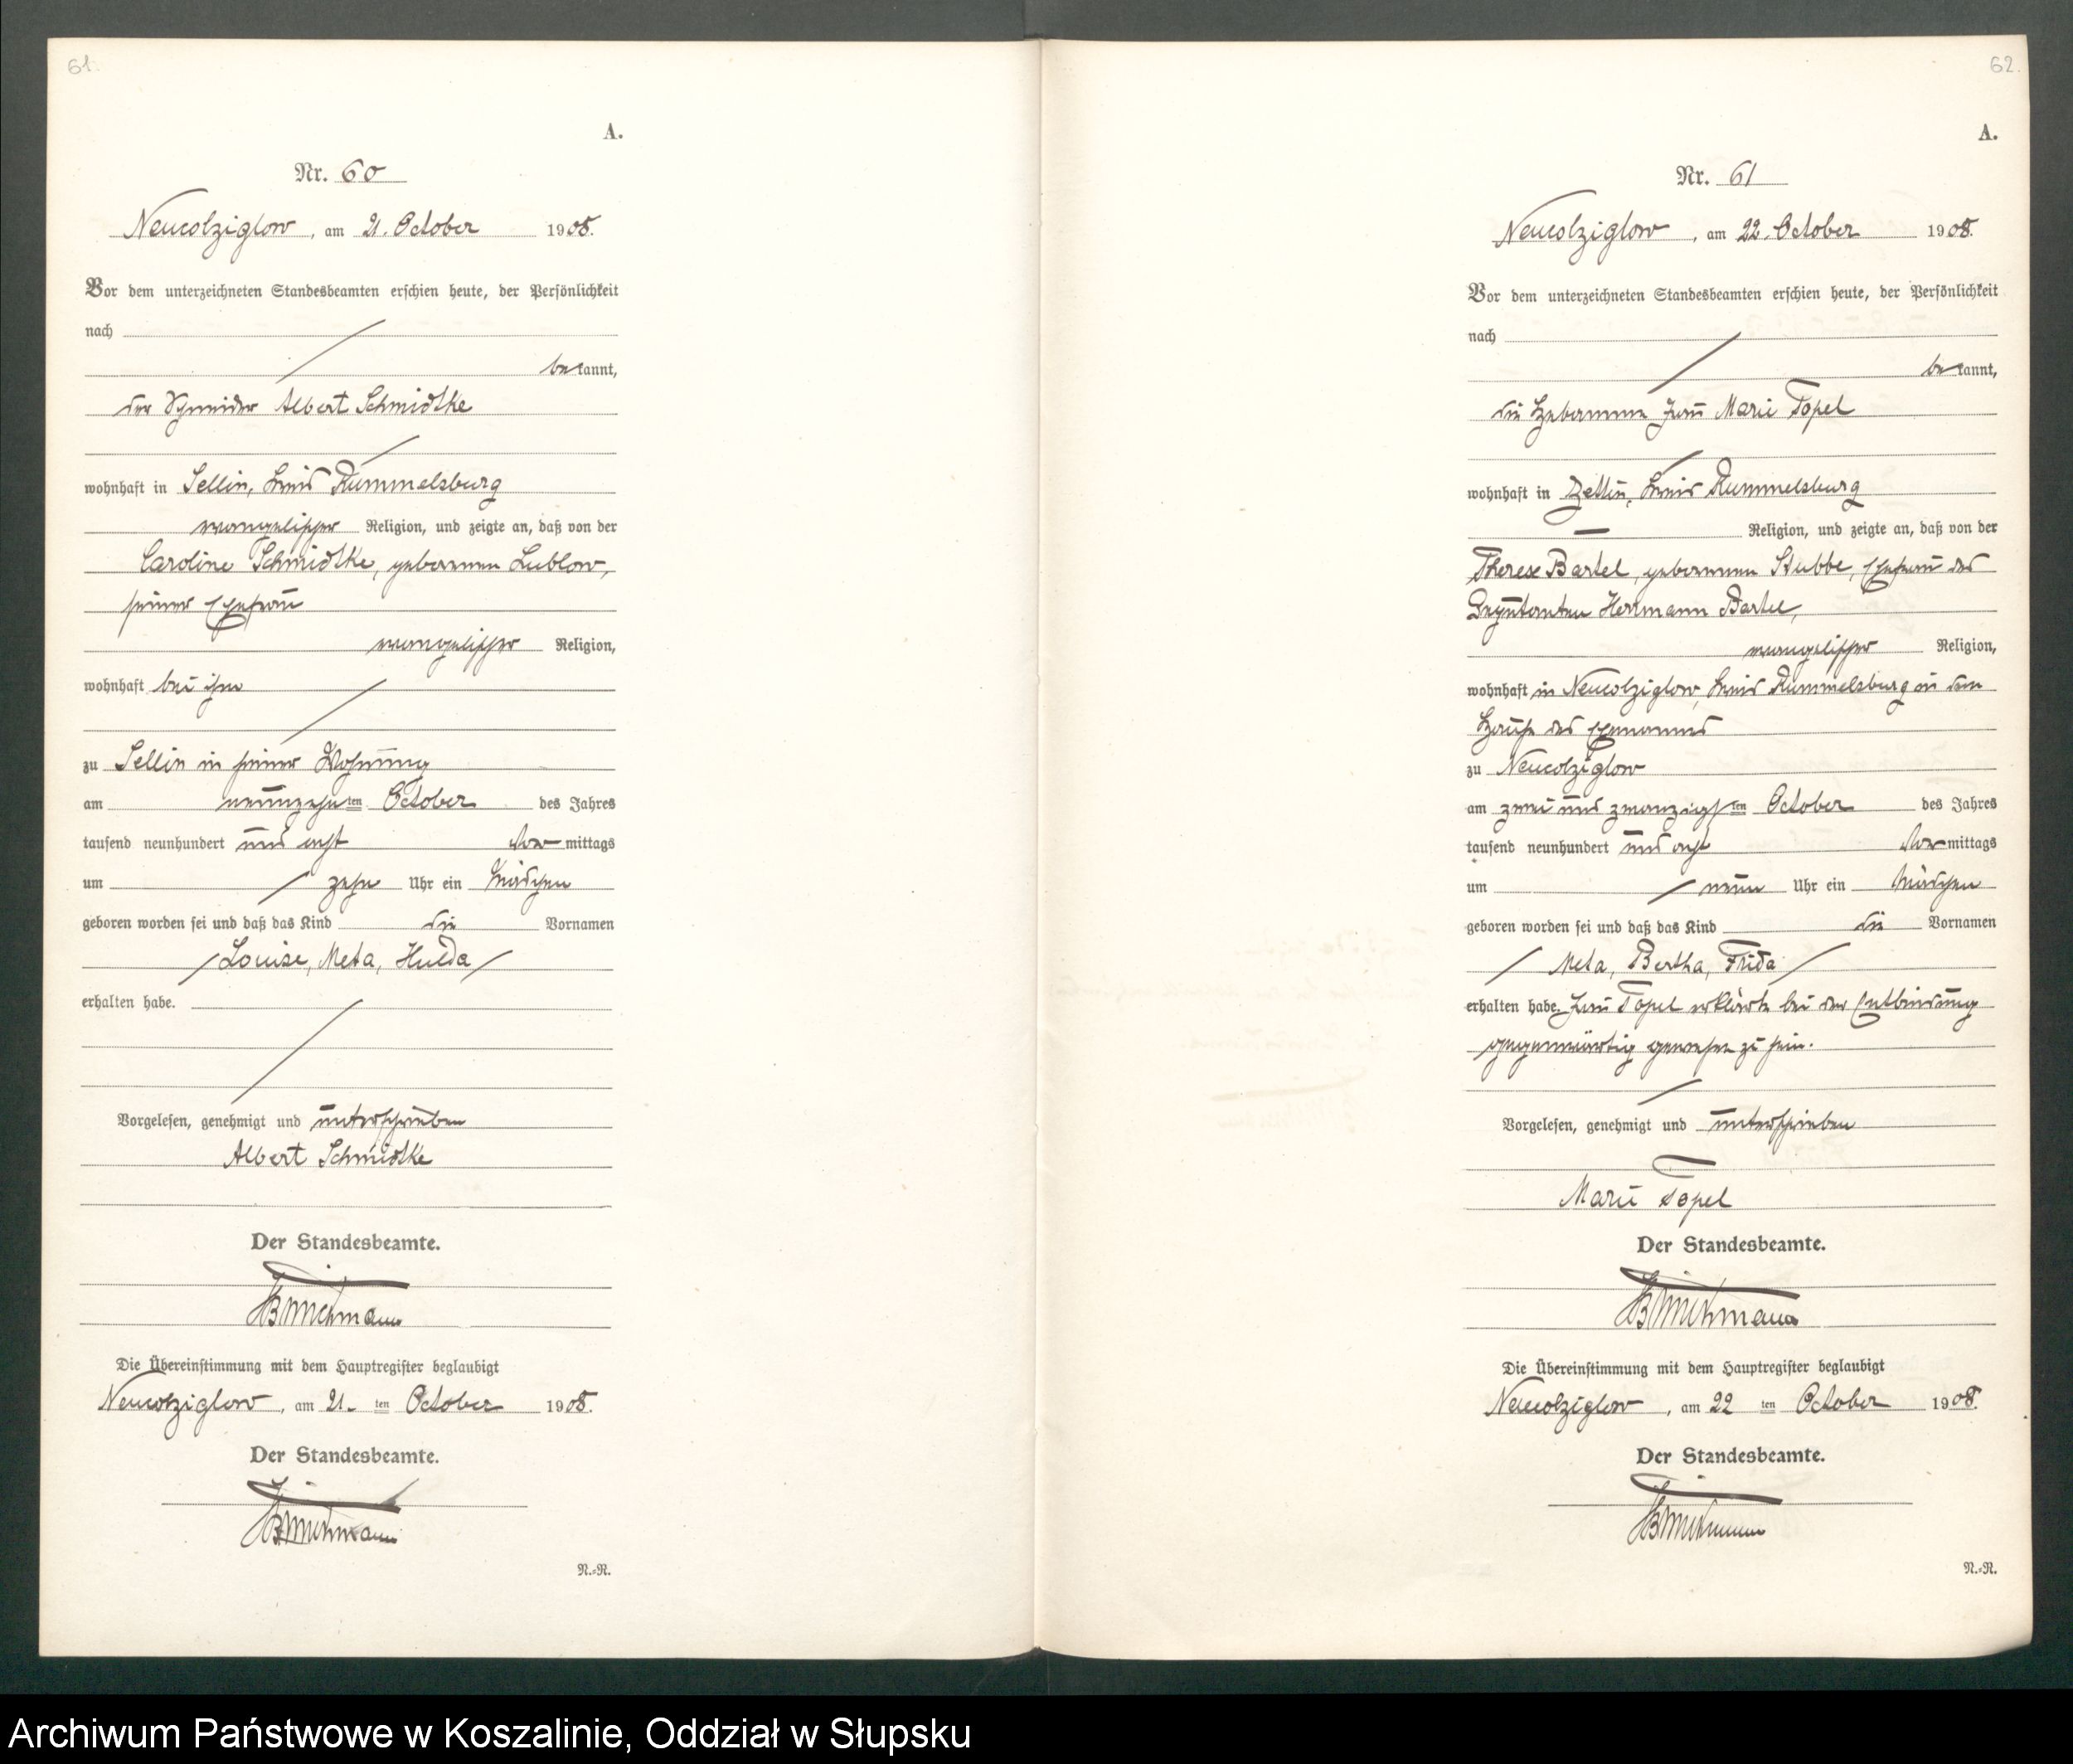 61.
A.
Nr. 60
Neucolziglow, am 21. October 1908.
Vor dem unterzeichneten Standesbeamten erschien heute, der Persönlichkeit
nach
bekannt,
der Schneider Albert Schmidtke
wohnhaft in Sellin, Kreis Rummelsburg
evangelischer Religion, und zeigte an, daß von der
Caroline Schmidtke, geborenen Lublow,
seiner Ehefrau
evangelischer Religion,
wohnhaft bei ihm
zu Sellin in seiner Wohnung
am neunzehnten October des Jahres
tausend neunhundert und acht Vormittags
um zehn Uhr ein Mädchen
geboren worden sei und daß das Kind die Vornamen
Louise, Meta, Hulda
erhalten habe.
Vorgelesen, genehmigt und unterschrieben
Albert Schmidtke
Der Standesbeamte.
Die Übereinstimmung mit dem Hauptregister beglaubigt
Neucolziglow, am 21. ten October 1908.
Der Standesbeamte.
N.=R.
62.
A.
Nr. 61
Neucolziglow, am 22. October 1908.
Vor dem unterzeichneten Standesbeamten erschien heute, der Persönlichkeit
nach
bekannt,
die Hebamme Frau Marie Topel
wohnhaft in Zettin, Kreis Rummelsburg
— Religion, und zeigte an, daß von der
Therese Bartel, geborenen Stubbe, Ehefrau des
Herrmann Bartel,
evangelischer Religion,
wohnhaft in Neucolziglow, Kreis Rummelsburg in dem
Hause des Ehemannes
zu Neucolziglow
am zwei und zwanzigsten October des Jahres
tausend neunhundert und acht Vormittags
um neun Uhr ein Mädchen
geboren worden sei und daß das Kind die Vornamen
Meta, Bertha, Frida
erhalten habe. Frau Topel erklärte bei der Entbindung
gegenwärtig gewesen zu sein.
Vorgelesen, genehmigt und unterschrieben
Marie Topel
Der Standesbeamte.
Die Übereinstimmung mit dem Hauptregister beglaubigt
Neucolziglow, am 22 ten October 1908.
Der Standesbeamte.
N.=R.
Archiwum Państwowe w Koszalinie, Oddział w Słupsku